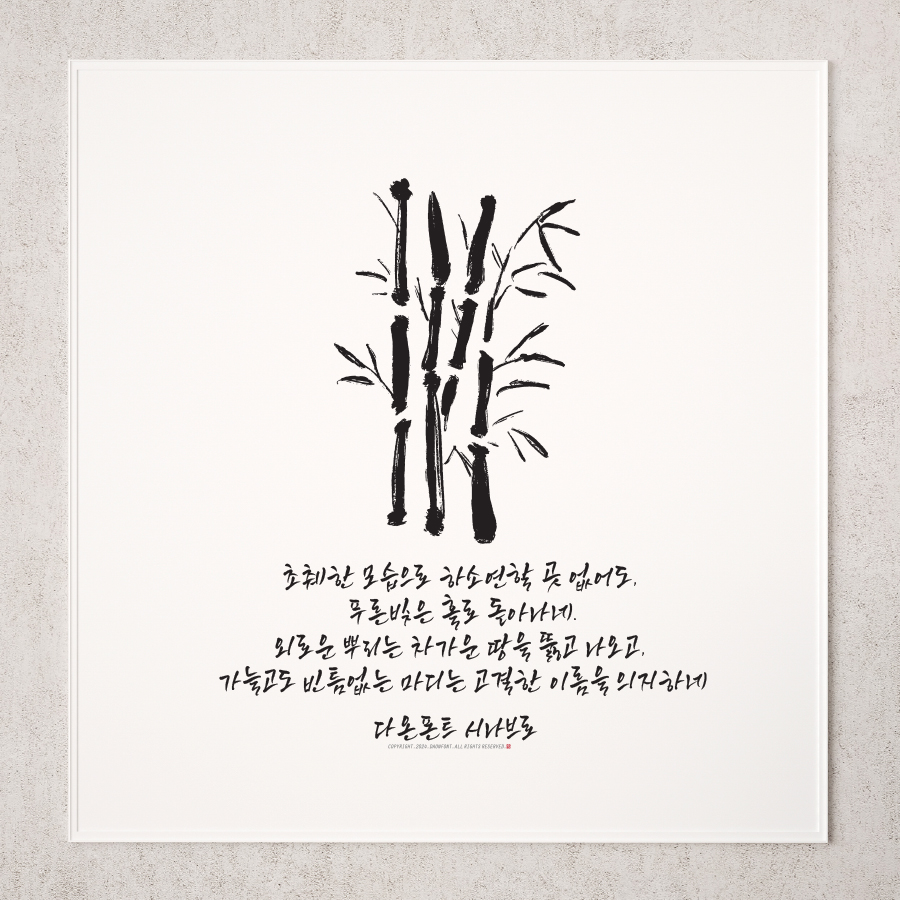 초췌한 모습으로 하소연할 곳 없어도,
푸른빛은 홀로 돋아나네.
외로운 뿌리는 차가운 땅을 뚫고 나오고,
가늘고도 빈틈없는 마디는 고결한 이름을 의지하네
다온폰트 시나브로
COPYRIGHT.2024.DAONFONT.ALL RIGHTS RESERVED.